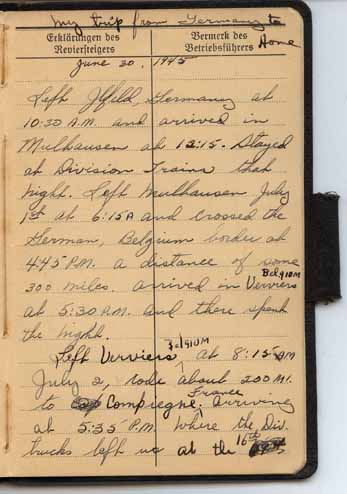 My trip from Germany to
Home
Erklärungen des Reviersteigers
Vermerk des Betriebsführers
June 30, 1945
Left Ilfeld, Germany at
10:30 A.M. and arrived in
Mulhausen at 12:15. Stayed
at Division Trains that
night. Left Mulhausen July
1st at 6:15A and crossed the
German, Belgium border at
445 P.M. a distance of some
300 miles. arrived in Verviers Belgiom
at 5:30 P.M. and there spent
the night.
Left Verviers Belgiom at 8:15 AM
July 2, rode about 200 MI.
to Compiegne, France arriving
at 5:35 P.M. where the Div.
trucks left us at the 16th